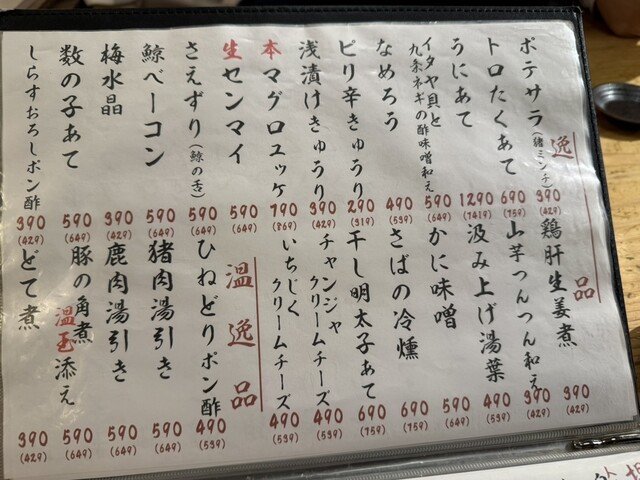 逸品
ポテサラ(猪ミンチ)
390
(429)
トロたくあて
690
(759)
うにあて
1290
(1419)
イタヤ貝と
九条ネギの酢味噌和え
590
(649)
なめろう
490
(539)
ピリ辛きゅうり
290
(319)
浅漬けきゅうり
390
(429)
本マグロユッケ
790
(869)
生センマイ
590
(649)
さえずり(鯨の舌)
590
(649)
鯨ベーコン
590
(649)
梅水晶
390
(429)
数の子あて
590
(649)
しらすおろしポン酢
390
(429)
鶏肝生姜煮
390
(429)
山芋つんつん和え
390
(429)
汲み上げ湯葉
490
(539)
かに味噌
590
(649)
さばの冷燻
690
(759)
干し明太子あて
690
(759)
チャンジャ
クリームチーズ
490
(539)
いちじく
クリームチーズ
490
(539)
温逸品
ひねどりポン酢
490
(539)
猪肉湯引き
590
(649)
鹿肉湯引き
590
(649)
豚の角煮
温玉添え
590
(649)
どて煮
390
(429)